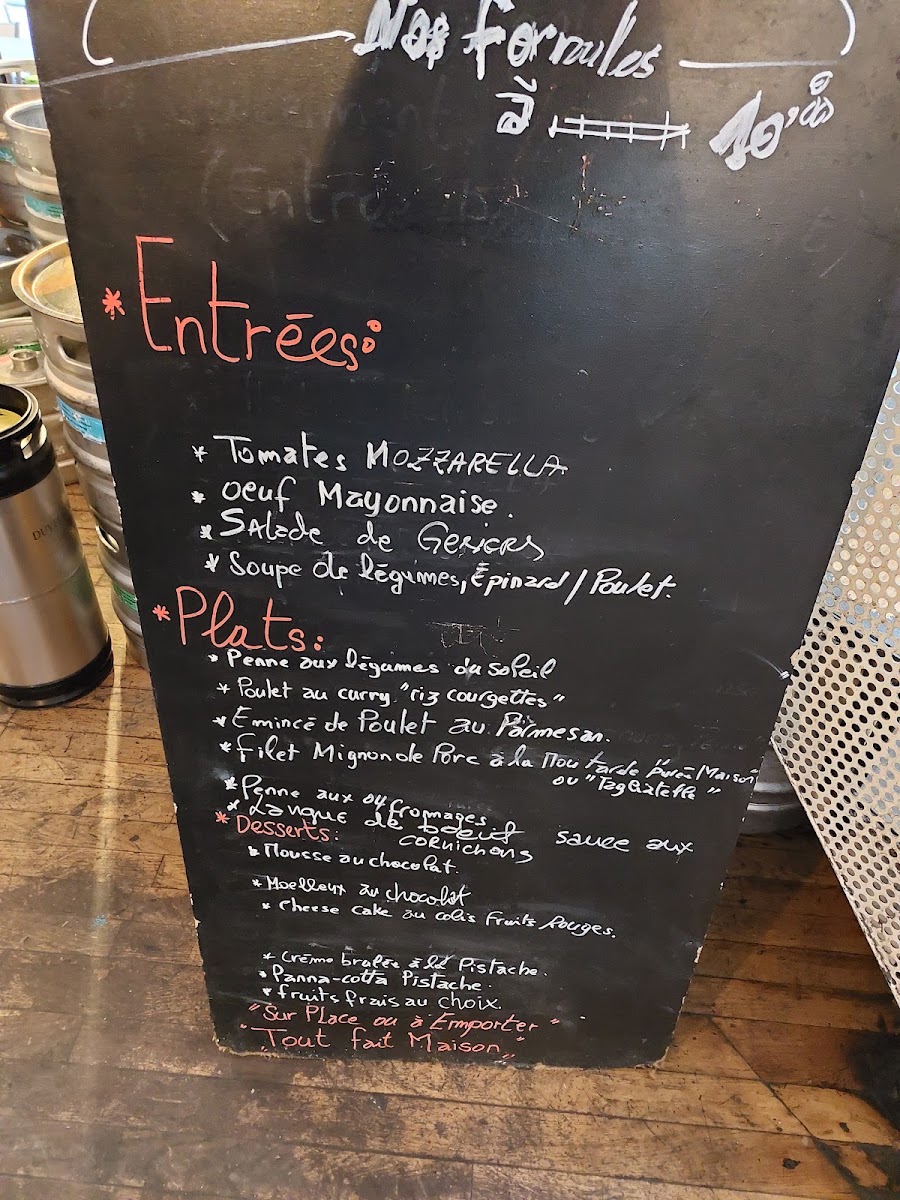 Nos formules
à 10,00
* Entrées:
* Tomates MOZZARELLA
* oeuf Mayonnaise.
* Salade de Gesiers
* Soupe de légumes, Épinard / Poulet.
* Plats:
* Penne aux légumes du soleil
* Poulet au curry "riz courgettes"
* Émincé de Poulet au Parmesan.
* filet Mignon de Porc à la Moutarde "purée Maison"
ou "Tagliatelle"
* Penne aux 04 fromages
* Langue de boeuf sauce aux
cornichons
* Desserts:
* Mousse au chocolat.
* Moelleux au chocolat
* Cheese cake au colis Fruits Rouges.
* Crème brulée à la Pistache.
* Panna-cotta Pistache.
* fruits frais au choix.
"Sur Place ou à Emporter"
"Tout fait Maison"